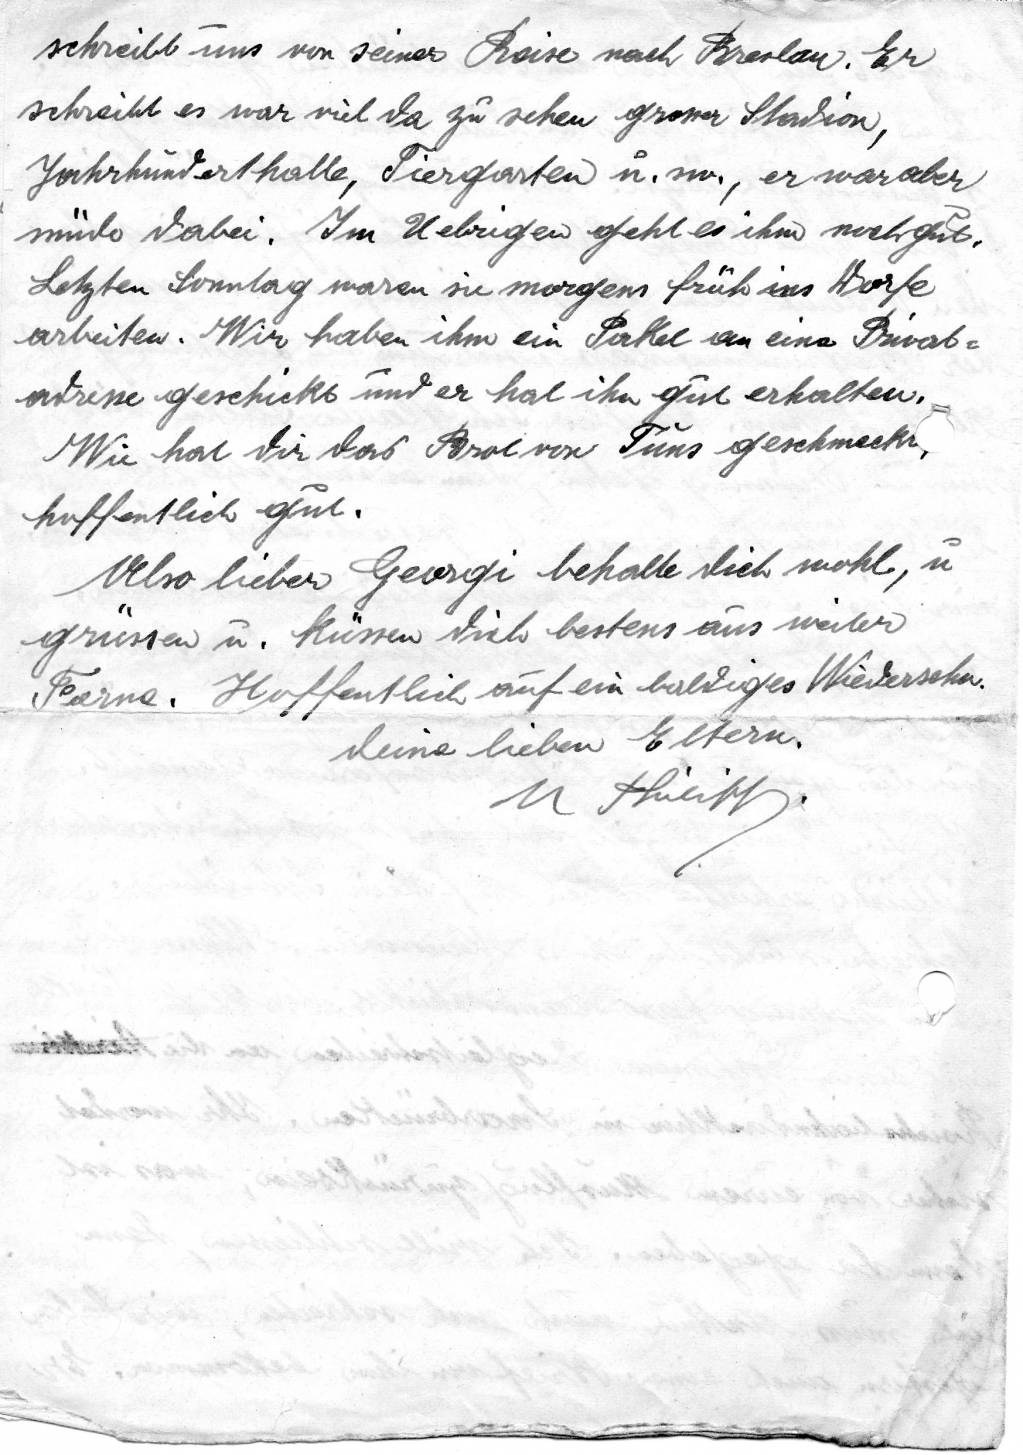 schreibt uns von seiner Reise nach Breslau. Er
schreibt es war viel da zu sehen grosser Stadion,
Jahrhunderthalle, Tiergarten u. sw., er war aber
müde dabei. Im Uebrigen geht es ihm noch gut.
Letzten Sonntag waren sie morgens früh ins Dorfe
arbeiten. Wir haben ihm ein Paket an eine Privat=
adresse geschickt und er hat ihn gut erhalten.
Wie hat dir das Brot von uns geschmeckt,
hoffentlich gut.
Also lieber Georgi behalte dich wohl, u
grüssen u. küssen dich bestens aus weiter
Ferne. Hoffentlich auf ein baldiges Wiedersehn.
Deine lieben Eltern.